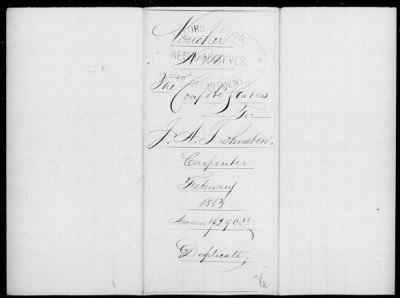 Voucher
No
The Confed States
To
J. A. Johnston.
Carpenter
February
1863
Amount $290
Duplicate,